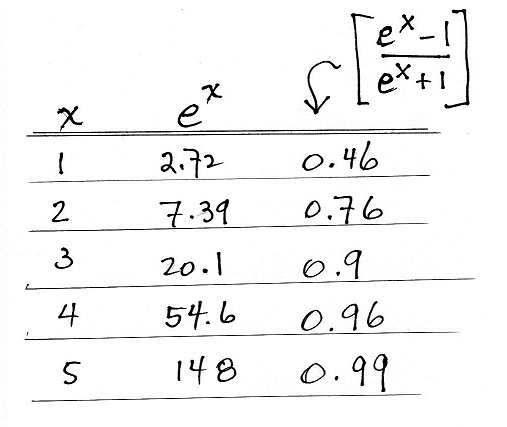 [e^x - 1 / e^x + 1]
x e^x
1 2.72 0.46
2 7.39 0.76
3 20.1 0.9
4 54.6 0.96
5 148 0.99